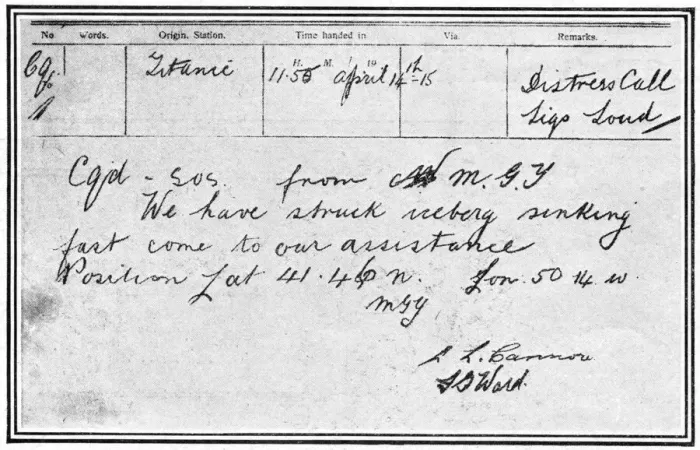 No. Words. Origin. Station. Time handed in Via. Remarks.
H. M. 19
Cqd Titanic 11.55 April 14th-15 Distress Call
Sigs Loud
Cqd - SOS. from M.G.Y
We have struck iceberg sinking
fast come to our assistance
Position Lat 41.46 n. Lon. 50 14 w.
MGY
Cannon
Ward.